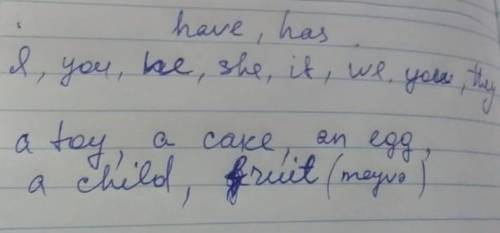 have, has.
I, you, he, she, it, we, you, they
a toy, a cake, an egg,
a child, fruit (meyva)